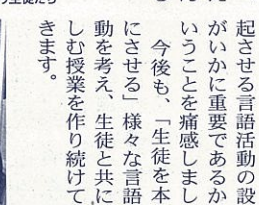 起させる言語活動の設
がいかに重要であるか
いうことを痛感しまし
　今後も、「生徒を本
にさせる」様々な言語
動を考え、生徒と共に
しむ授業を作り続けて
きます。